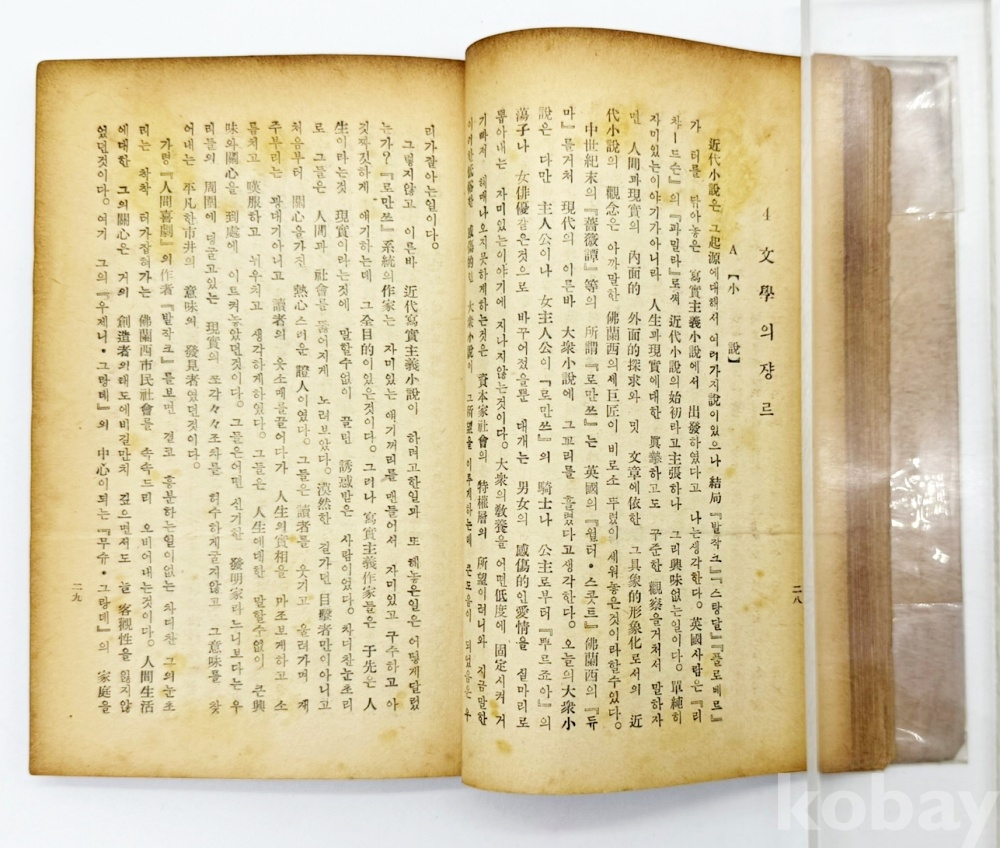 4 文學의쟝르
A【小 說】
近代小說은 그起源에대해서 여러가지說이있으나 結局『발작크』『스탕달』『플로베르』
가 터를 닦아놓은 寫實主義小說에서 出發하였다고 나는생각한다。英國사람은『리
촤ー드슨』의『파밀라』로써 近代小說의始初라고主張하나 그리興味없는일이다。單純히
자미있는이야기가아니라 人生과現實에대한 眞摯하고도 구준한 觀察을거처서 말하자
면 人間과現實의 內面的 外面的探求와 및 文章에依한 그具象的形象化로서의 近
代小說의 觀念은 아까말한 佛蘭西의세巨匠이 비로소 뚜렸이 세워놓은것이라할수있다。
中世紀末의『薔薇譚』等의 所謂『로만쓰』는 英國의『월터・스콧트』佛蘭西의『듀
마』를거처 現代의 이른바 大衆小說에 그꼬리를 흘렸다고생각한다。오늘의大衆小
說은 다만 主人公이나 女主人公이『로만쓰』의 騎士나 公主로부터『뿌르죠아』의
蕩子나 女俳優같은것으로 바꾸어졌을뿐 대개는 男女의 感傷的인愛情을 실마리로
뽑아내는 자미있는이야기에 지나지않는것이다。大衆의敎養을 어떤低度에 固定시켜 거
기빠저 헤매나오지못하게하는것은 資本家社會의 特權層의 所望이러니와 지금말한
感傷的인 大衆小說이 그所望을이루게하는데 큰도움이 되었음은 우
二八
리가잘아는일이다。
그렇지않고 이른바 近代寫實主義小說이 하려고한일과 또 해놓은일은 어떻게달렀
는가?『로만쓰』系統의作家는 자미있는 얘기꺼리를 맨들어서 자미있고 구수하고 아
깃자깃하게 얘기하는데 그全目的이있은것이다。그러나 寫實主義作家들은 于先은 人
生이라는것 現實이라는것에 말할수없이 끌린 誘惑받은 사람이였다。차디찬눈초리
로 그들은 人間과 社會를 뚫어지게 노려보았다。漠然한 길가던 目擊者만이아니고
처음부터 關心을가진 熱心스러운 證人이였다。그들은 讀者를 웃기고 울려가며 재
주부리는 광대가아니고 讀者의 옷소매를끌어다가 人生의實相을 마조보게하고 소
름치고 嘆服하고 뉘우치고 생각하게하였다。그들은人生에대한 말할수없이 큰興
味와關心을 到處에 이르켜놓았던것이다。그들은어떤 신기한 發明家라느니보다는 우
리들의 周圍에 덩굴고있는 現實의 쪼각々々조차를 허수하게굴지않고 그意味를 찾
어내는 平凡한市井의 意味의 發見者였던것이다。
가령『人間喜劇』의作者『발작크』를보면 결코 흥분하는일이없는 차디찬 그의눈초
리는 착착 터가잡혀가는 佛蘭西市民社會를 속속드리 오비어내는것이다。人間生活
에대한 그의關心은 거의 創造者의태도에비길만치 깊으면서도 늘 客觀性을 잃지않
었던것이다。여기 그의『우제니・그랑데』의 中心이되는『무슈・그랑데』의 家庭을
二九
kobay